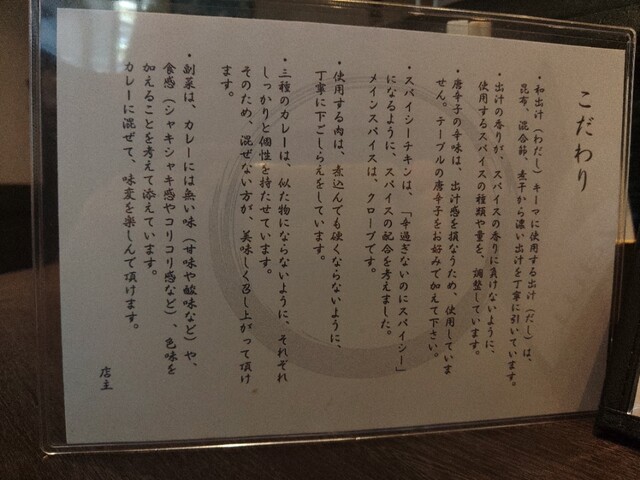 こだわり
・和出汁（わだし）キーマに使用する出汁（だし）は、
昆布、混合節、煮干から濃い出汁を丁寧に引いています。
・出汁の香りが、スパイスの香りに負けないように、
使用するスパイスの種類や量を、調整しています。
・唐辛子の辛味は、出汁感を損なうため、使用していま
せん。テーブルの唐辛子をお好みで加えて下さい。
・スパイシーチキンは、「辛過ぎないのにスパイシー」
になるように、スパイスの配合を考えました。
メインスパイスは、クローブです。
・使用する肉は、煮込んでも硬くならないように、
丁寧に下ごしらえをしています。
・三種のカレーは、似た物にならないように、それぞれ
しっかりと個性を持たせています。
そのため、混ぜない方が、美味しく召し上がって頂け
ます。
・副菜は、カレーには無い味（甘味や酸味など）や、
食感（シャキシャキ感やコリコリ感など）、色味を
加えることを考えて添えています。
カレーに混ぜて、味変を楽しんで頂けます。
店主